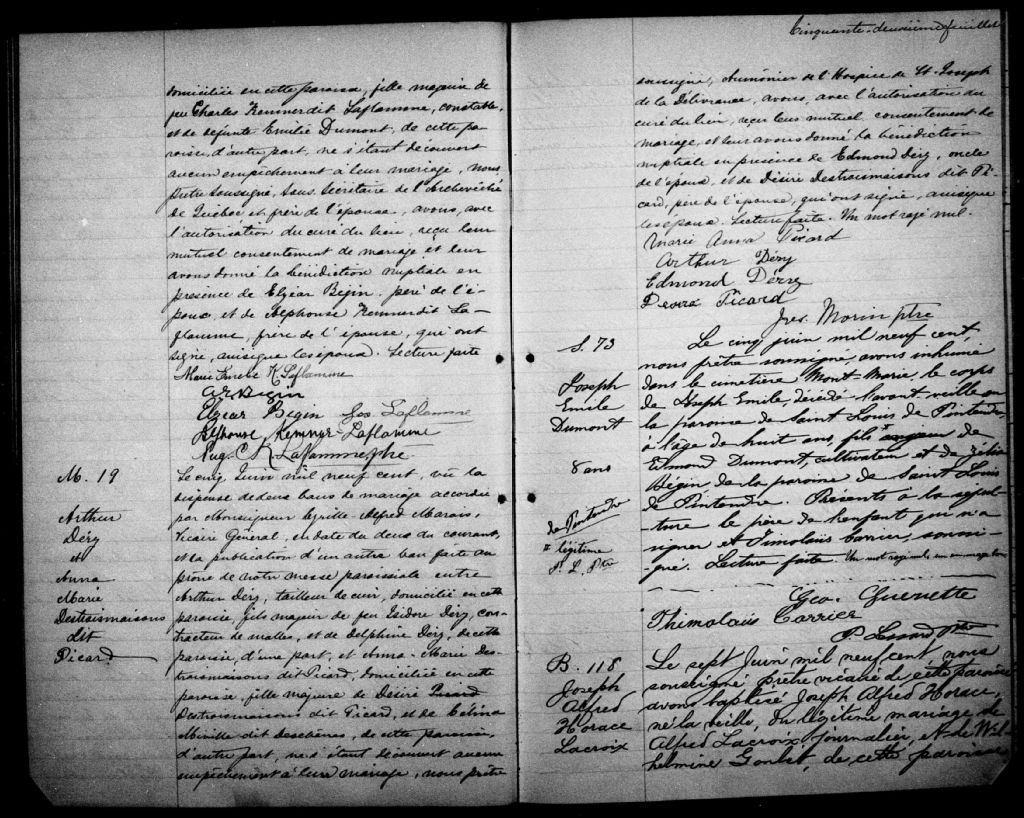 domiciliée en cette paroisse, fille majeure de
feu Charles Kemnerdit Laflamme, constable,
et de défunte Emilie Dumont, de cette pa
roisse, d'autre part, ne s'étant découvert
aucun empêchement à leur mariage, Nous
prêtre soussigné, sous-secrétaire de l'Archevêché
de Québec et frère de l'épouse, avons, avec
l'autorisation du curé du lieu, reçu leur
mutuel consentement de mariage et leur
avons donné la bénédiction nuptiale en
présence de Elzéar Bégin, père de l'é-
poux, et de Alphonse Kemnerdit La-
flamme, frère de l'épouse, qui ont
signé, ainsique lesépoux. Lecture faite
Marie K. Laflamme
Bégin
Elzéar Bégin Geo. Laflamme
Alphonse Kemner-Laflamme
Eug. C. K. Laflamme, ptre
M. 19
Arthur
Déry
et
Anna
Marie
Destroismaisons
dit
Picard
Le cinq Juin mil neuf cent, vu la
dispense dedeux bans de mariage accordée
par Monseigneur Cyrille-Alfred Marois,
Vicaire Général, endate du deux du courant,
et la publication d'un autre ban faite au
prône de notre messe paroissiale entre
Arthur Déry, tailleur de cuir, domicilié en cette
paroisse, fils majeur de feu Isidore Déry, con-
tracteur de malles, et de Delphine Déry, de cette
paroisse, d'une part, et Anna-Marie Des-
troismaisons dit Picard, domiciliée en cette
paroisse, fille majeure de Désiré Picard
Destroismaisons dit Picard, et de Célina
Miville dit deschènes, de cette paroisse,
d'autre part, ne s'étant découvert aucun
empêchement à leur mariage, nous prêtre
Cinquante-deuxième feuillet
soussigné, Aumônier de l'Hospice de St-Joseph
de la Délivrance, avons, avec l'autorisation du
curé du lieu, reçu leur mutuel consentement de
mariage, et leur avons donné la bénédiction
nuptiale en présence de Edmond Déry, oncle
de l'époux, et de Désiré Destroismaisons dit Pi-
card, père de l'épouse, qui ont signé, ainsique
lesépoux. Lecture faite. Un mot rayé nul.
Marie Anna Picard
Arthur Déry
Edmond Déry
Picard
Jos. Morin ptre
S. 73
Joseph
Emile
Dumont
8 ans
de Pintendre
# légitime
P. L. Ptre
Le cinq juin mil neuf cent,
nous prêtre soussigné, avons inhumé
dans le cimetière Mont-Marie, le corps
de Joseph Emile, décédé l'avant-veille en
la paroisse de Saint Louis de Pintendre,
à l'âge de huit ans, fils # de
Edmond Dumont, cultivateur et de
Bégin de la paroisse de Saint Louis
de Pintendre. Présents à la sépul-
ture le père de l'enfant qui n'a
signer et Timolaüs Carrier, soussi-
gné. Lecture faite. Un mot rayé nul, un en marge bon
Geo. Guenette
Thimolaüs Carrier
P. Ptre
B. 118
Joseph
Alfred
Horace
Lacroix
Le sept Juin mil neuf cent nous
soussigné prêtre vicaire de cette paroisse
avons baptisé Joseph Alfred Horace,
né la veille, du légitime mariage de
Alfred Lacroix journalier, et de Wil-
helmine Goulet, de cette paroisse